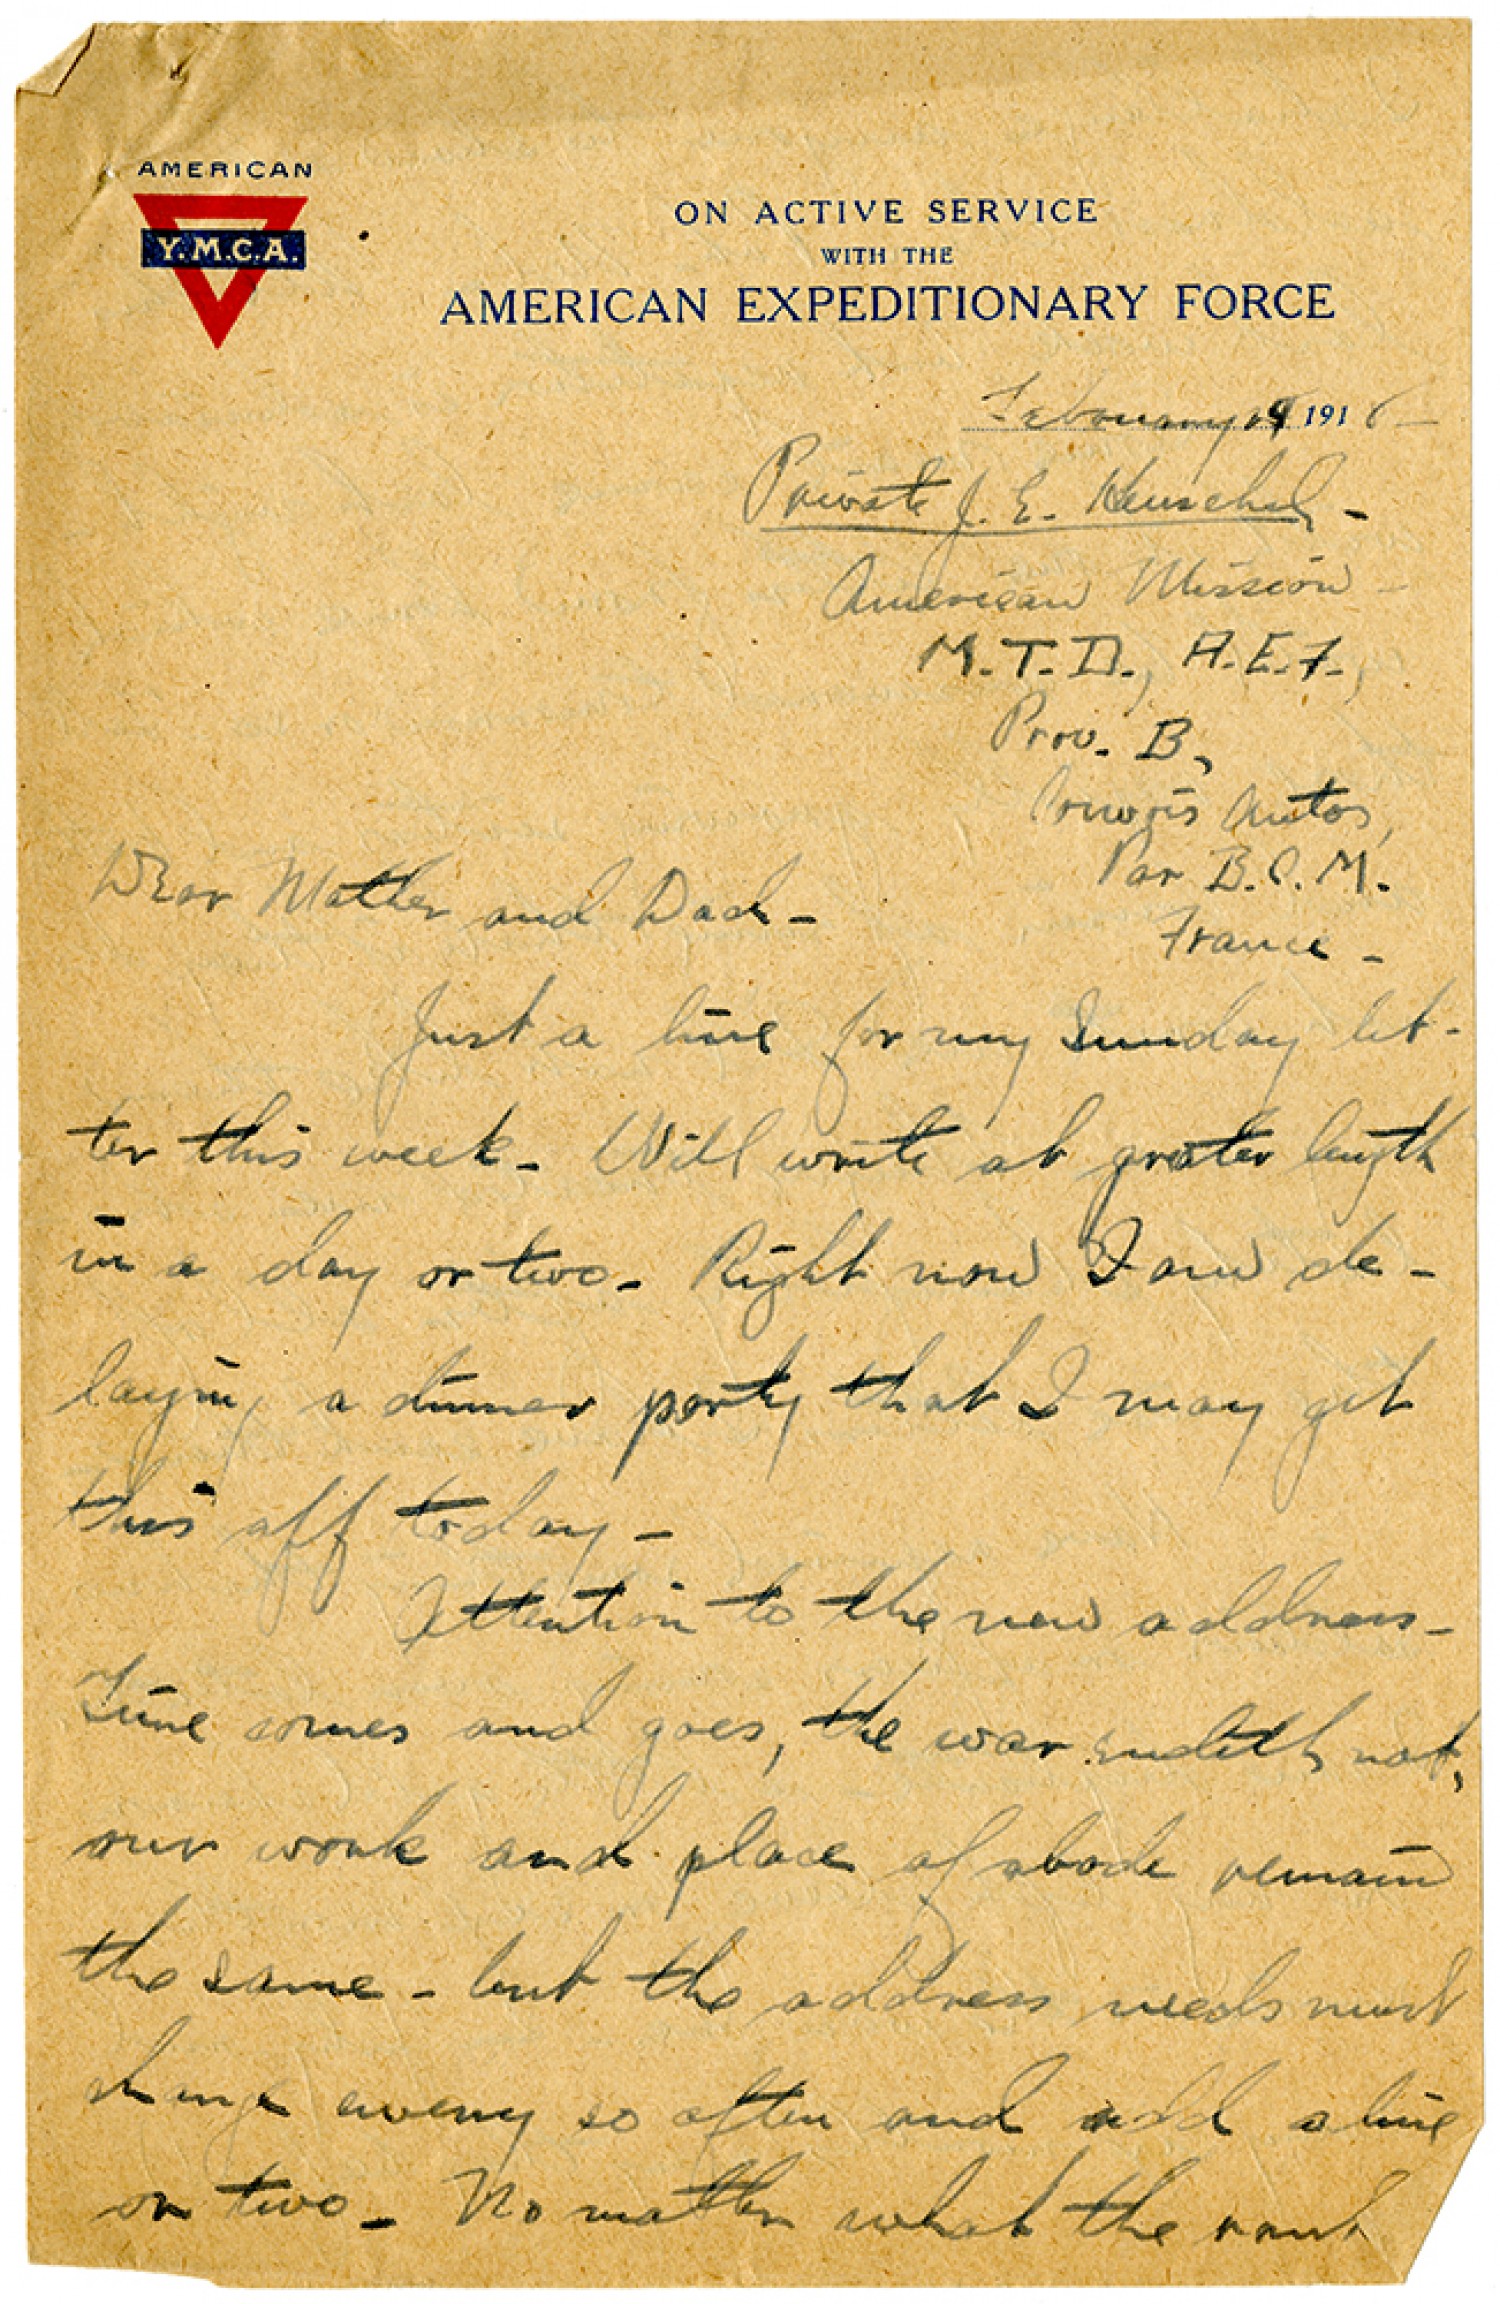 AMERICAN
Y.M.C.A.
ON ACTIVE SERVICE
WITH THE
AMERICAN EXPEDITIONARY FORCE
February 191
Private J. E. Henschel -
American Mission -
M.T.D., A.E.F.,
Prov. B,
Convois Autos,
Par B.C.M.
France -
Dear Mother and Dad -
Just a line for my Sunday let-
ter this week - Will write at greater length
in a day or two - Right now I am de-
laying a dinner party that I may get
this off today -
Attention to the new address -
Time comes and goes, the war endeth not,
our work and place of abode remain
the same - but the address needs must
change every so often and add a line
or two - No matter what the rank